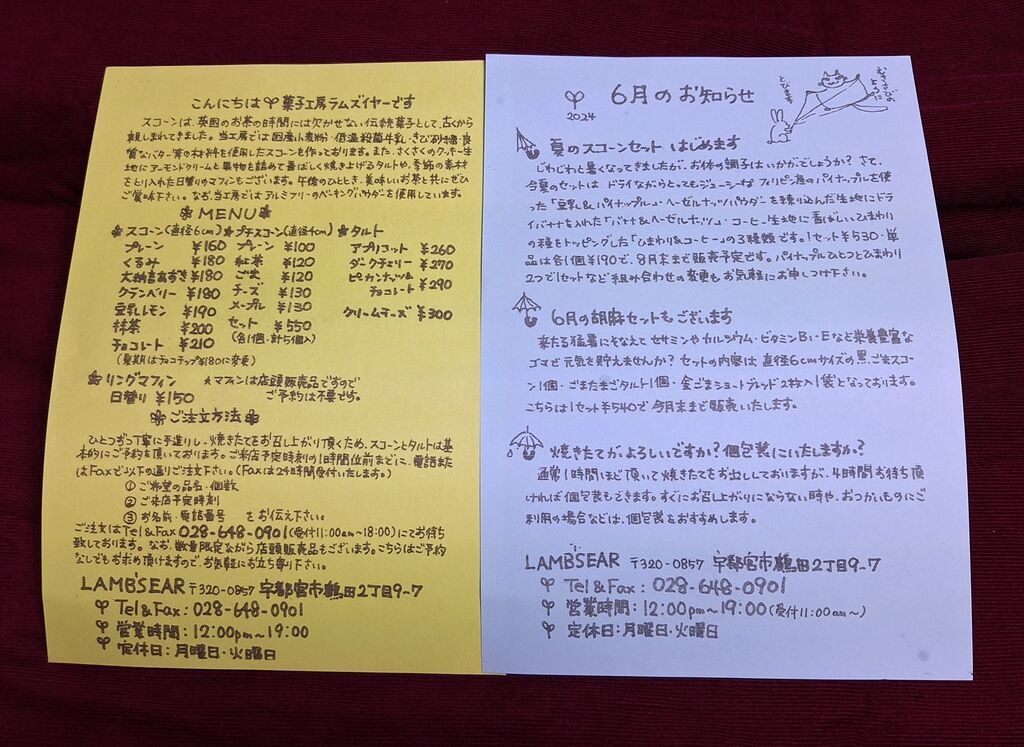 こんにちは 菓子工房ラムズイヤーです
スコーンは、英国のお茶の時間には欠かせない伝統菓子として、古くから
親しまれてきました。当工房では国産小麦粉・低温殺菌牛乳・きび砂糖・良
質なバター等の材料を使用したスコーンを作っております。また、さくさくのクッキー生
地にアーモンドクリームと果物を詰めて香ばしく焼き上げるタルトや、季節の素材
をとり入れた日替りのマフィンもございます。午後のひととき、美味しいお茶と共にぜひ
ご賞味下さい。なお、当工房ではアルミフリーのベーキングパウダーを使用しています。
MENU
スコーン(直径6cm)
プレーン ¥160
くるみ ¥180
大納言あずき ¥180
クランベリー ¥180
豆乳レモン ¥190
抹茶 ¥200
チョコレート ¥210
(夏期はチョコチップ¥180に変更)
プチスコーン(直径4cm)
プレーン ¥100
紅茶 ¥120
ごま ¥120
チーズ ¥130
メープル ¥130
セット ¥550
(各1個・計5個入)
タルト
アプリコット ¥260
ダークチェリー ¥270
ピーカンナッツ&
チョコレート ¥290
クリームチーズ ¥300
リングマフィン
日替り ¥150
★マフィンは店頭販売品ですので
ご予約は不要です。
ご注文方法
ひとつずつ丁寧に手造りし、焼きたてをお召し上がり頂くため、スコーンとタルトは基
本的にご予約を頂いております。ご来店予定時刻の1時間位前までに、電話また
はFaxで以下の通りご注文下さい。(Faxは24時間受付いたします。)
① ご希望の品名・個数
② ご来店予定時刻
③ お名前・電話番号 をお伝え下さい。
ご注文はTel&Fax 028-648-0901(受付11:00am~18:00)にてお待ち
致しております。なお、数量限定ながら店頭販売品もございます。こちらはご予約
なしでもお求め頂けますので、お気軽にお立ち寄り下さい。
LAMB'SEAR 〒320-0857 宇都宮市鶴田2丁目9-7
Tel&Fax:028-648-0901
営業時間:12:00pm~19:00
定休日:月曜日・火曜日
6月のお知らせ
2024
むささびの
ように
とびます
夏のスコーンセット はじめます
じわじわと暑くなってきましたが、お体の調子はいかがでしょうか?さて、
今夏のセットは、ドライながらとってもジューシーなフィリピン産のパイナップルを使
った「豆乳&パイナップル」・ヘーゼルナッツパウダーを練り込んだ生地にドラ
イバナナを入れた「バナナ&ヘーゼルナッツ」・コーヒー生地に香ばしいひまわり
の種をトッピングした「ひまわり&コーヒー」の3種類です。1セット¥530・単
品は各1個¥190で、8月末まで販売予定です。パイナップルひとつとひまわり
2つで1セットなど組み合わせの変更もお気軽にお申しつけ下さい。
6月の胡麻セットもございます
来たる猛暑にそなえてセサミンやカルシウム・ビタミンB₁・Eなど栄養豊富な
ゴマで元気を貯えませんか?セットの内容は直径6cmサイズの黒ごまスコー
ン1個・ごまたまごタルト1個・金ごまショートブレッド2枚入1袋となっております。
こちらは1セット¥540で今月末まで販売いたします。
焼きたてがよろしいですか?個包装にいたしますか?
通常1時間ほど頂いて焼きたてをお出ししておりますが、4時間お待ち頂
ければ個包装もできます。すぐにお召し上がりにならない時や、おつかいものにご
利用の場合などは、個包装をおすすめします。
LAMB'SEAR 〒320-0857 宇都宮市鶴田2丁目9-7
Tel&Fax:028-648-0901
営業時間:12:00pm~19:00(受付11:00am~)
定休日:月曜日・火曜日